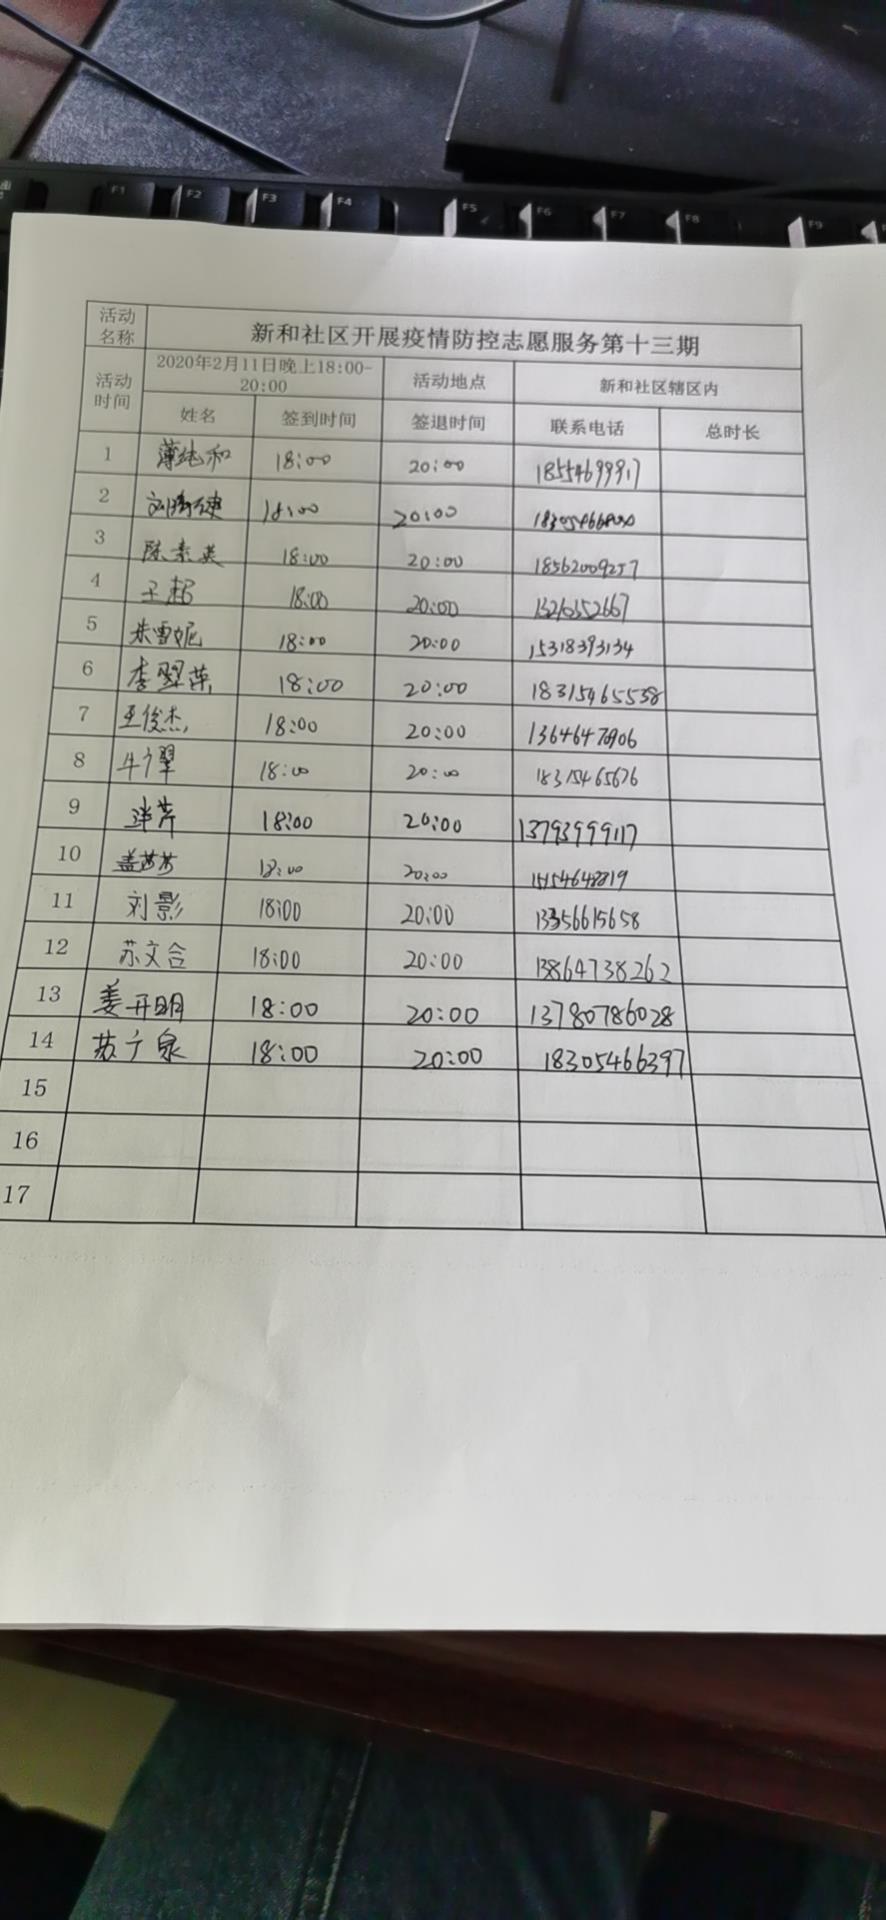 F1 F2 F3 F4 F5 F6 F7 F8 F9
活动名称 新和社区开展疫情防控志愿服务第十三期
活动时间 2020年2月11日晚上18:00-20:00 活动地点 新和社区辖区内
姓名 签到时间 签退时间 联系电话 总时长
1 薄纯和 18:00 20:00 18554699917
2 18:00 20:00
3 陈素英 18:00 20:00 18562009257
4 18:00 20:00
5 朱雪妮 18:00 20:00 15318393134
6 李翠萍 18:00 20:00 18315465538
7 王俊杰 18:00 20:00
8 18:00 20:00 18315465676
9 18:00 20:00 13793999117
10 18:00 20:00
11 刘影 18:00 20:00
12 苏文合 18:00 20:00 13864738262
13 姜开明 18:00 20:00 13780786028
14 苏广泉 18:00 20:00 18305466397
15
16
17